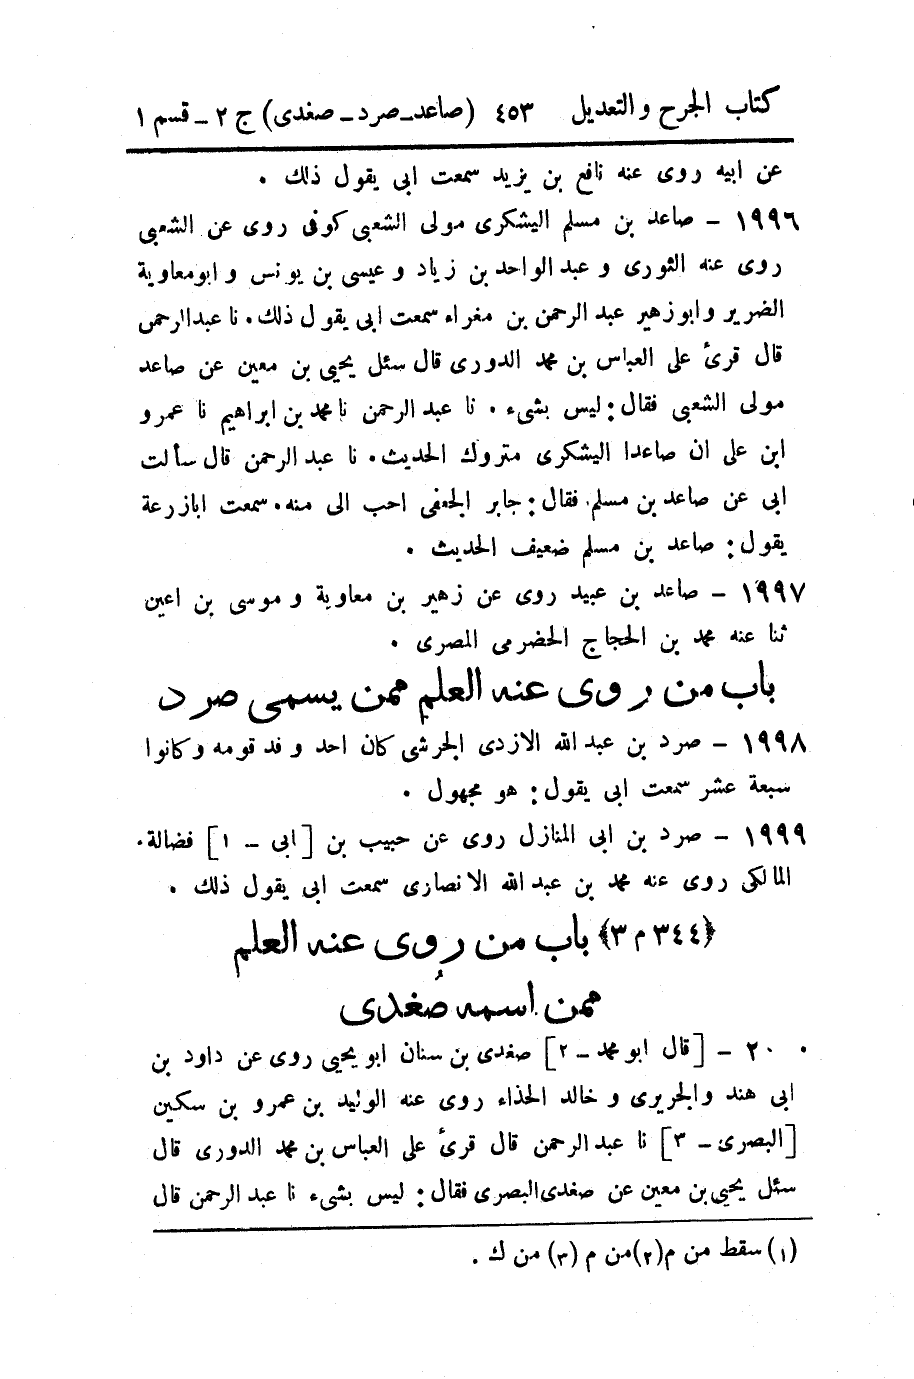 كتاب الجرح والتعديل ٤٥٣ (صاعد_صرد_ صغدى) ج ٢ _ قسم ١
عن ابيه روى عنه نافع بن يزيد سمعت ابى يقول ذلك .
١٩٩٦ – صاعد بن مسلم اليشكرى مولى الشعبى كوفى روى عن الشعبى
روى عنه الثورى و عبد الواحد بن زياد و عيسى بن يونس و ابومعاوية
الضرير وابوزهير عبد الرحمن بن مغراء سمعت ابى يقول ذلك . نا عبدالرحمن
قال قرئ على العباس بن محمد الدورى قال سئل يحيى بن معين عن صاعد
مولى الشعبى فقال : ليس بشىء . نا عبد الرحمن نا محمد بن ابراهيم نا عمرو
ابن على ان صاعدا اليشكرى متروك الحديث . نا عبد الرحمن قال سألت
ابى عن صاعد بن مسلم فقال : جابر الجعفى احب الى منه . سمعت ابازرعة
يقول : صاعد بن مسلم ضعيف الحديث .
١٩٩٧ – صاعد بن عبيد روى عن زهير بن معاوية و موسى بن اعين
ثنا عنه محمد بن الحجاج الحضرمى المصرى .
باب من روى عنه العلم ممن يسمى صرد
١٩٩٨ – صرد بن عبد الله الازدى الجرشى كان احد وفد قومه وكانوا
سبعة عشر سمعت ابى يقول : هو مجهول .
١٩٩٩ – صرد بن ابى المنازل روى عن حبيب بن [ابى _ ١] فضالة .
المالكى روى عنه محمد بن عبد الله الانصارى سمعت ابى يقول ذلك .
﴿٣٤٤ م ٣﴾ باب من روى عنه العلم
ممن اسمه صُغدى
٢٠٠ – [قال ابو محمد _ ٢] صغدى بن سنان ابو يحيى روى عن داود بن
ابى هند والجريرى و خالد الحذاء روى عنه الوليد بن عمرو بن سكين
[البصرى _ ٣] نا عبد الرحمن قال قرئ على العباس بن محمد الدورى قال
سئل يحيى بن معين عن صغدى البصرى فقال : ليس بشىء نا عبد الرحمن قال
(١) سقط من م (٢) من م (٣) من ك .